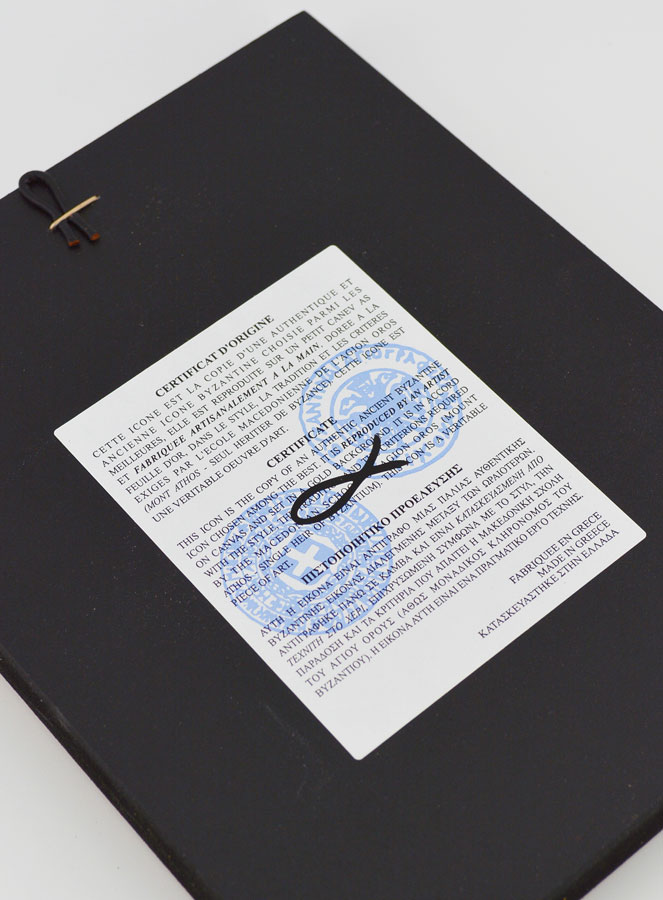 CERTIFICAT D'ORIGINE
CETTE ICONE EST LA COPIE D'UNE AUTHENTIQUE ET
ANCIENNE ICONE BYZANTINE CHOISIE PARMI LES
MEILLEURES, ELLE EST REPRODUITE SUR UN PETIT CANEV AS
ET FABRIQUEE ARTISANALEMENT A LA MAIN. DOREE A LA
FEUILLE D'OR. DANS LE STYLE, LA TRADITION ET LES CRITERES
EXIGES PAR L'ECOLE MACEDONIENNE DE L'AGION OROS
(MONT ATHOS - SEUL HERITIER DE BYZANCE). CETTE ICONE EST
UNE VERITABLE OEUVRE D'ART.
CERTIFICATE
THIS ICON IS THE COPY OF AN AUTHENTIC ANCIENT BYZANTINE
ICON CHOSEN AMONG THE BEST. IT IS REPRODUCED BY AN ARTIST
ON CANVAS AND SET IN A GOLD BACKGROUND. IT IS IN ACCORD
WITH THE STYLE, TRADITION AND CRITERIONS REQUIRED
BY THE MACEDONIAN SCHOOL OF AGION OROS (MOUNT
ATHOS - SINGLE HEIR OF BYZANTIUM). THIS ICON IS A VERITABLE
PIECE OF ART.
ΠΙΣΤΟΠΟΙΗΤΙΚΟ ΠΡΟΕΛΕΥΣΗΣ
ΑΥΤΗ Η ΕΙΚΟΝΑ ΕΙΝΑΙ ΑΝΤΙΓΡΑΦΟ ΜΙΑΣ ΠΑΛΙΑΣ ΑΥΘΕΝΤΙΚΗΣ
ΒΥΖΑΝΤΙΝΗΣ ΕΙΚΟΝΑΣ ΔΙΑΛΕΓΜΕΝΗΣ ΜΕΤΑΞΥ ΤΩΝ ΩΡΑΙΟΤΕΡΩΝ.
ΑΝΤΙΓΡΑΦΗΚΕ ΠΑΝΩ ΣΕ ΚΑΜΒΑ ΚΑΙ ΕΙΝΑΙ ΚΑΤΑΣΚΕΥΑΣΜΕΝΗ ΑΠΟ
ΤΕΧΝΙΤΗ ΣΤΟ ΧΕΡΙ. ΕΠΙΧΡΥΣΩΜΕΝΗ ΣΥΜΦΩΝΑ ΜΕ ΤΟ ΣΤΥΛ, ΤΗΝ
ΠΑΡΑΔΟΣΗ ΚΑΙ ΤΑ ΚΡΙΤΗΡΙΑ ΠΟΥ ΑΠΑΙΤΕΙ Η ΜΑΚΕΔΟΝΙΚΗ ΣΧΟΛΗ
ΤΟΥ ΑΓΙΟΥ ΟΡΟΥΣ (ΑΘΩΣ ΜΟΝΑΔΙΚΟΣ ΚΛΗΡΟΝΟΜΟΣ ΤΟΥ
ΒΥΖΑΝΤΙΟΥ). Η ΕΙΚΟΝΑ ΑΥΤΗ ΕΙΝΑΙ ΕΝΑ ΠΡΑΓΜΑΤΙΚΟ ΕΡΓΟ ΤΕΧΝΗΣ.
FABRIQUEE EN GRECE
MADE IN GREECE
ΚΑΤΑΣΚΕΥΑΣΤΗΚΕ ΣΤΗΝ ΕΛΛΑΔΑ